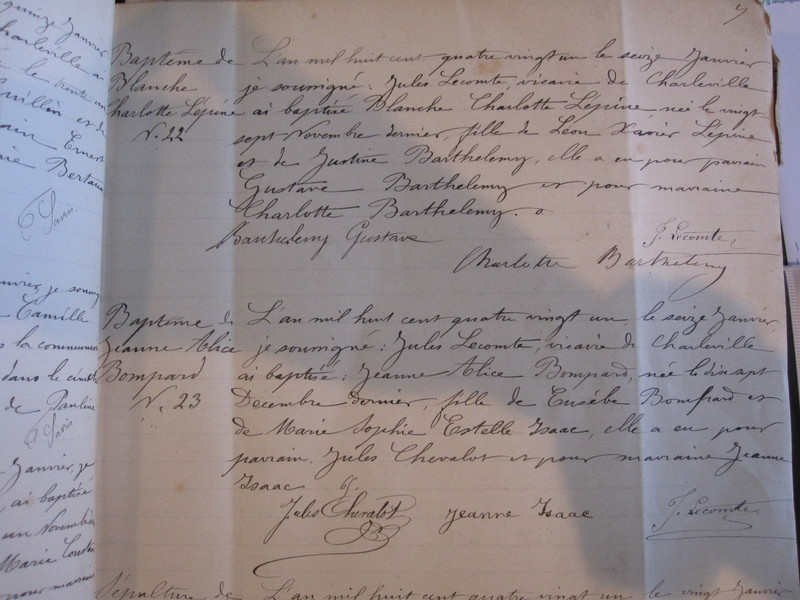 quinze Janvier
Charleville ai
Ernest
Bertaux
Janvier, je
ai baptisé
un Novembre
Marie
pour marraine
je
Camille
la commune
dans le
de Pauline
7
Baptême de
Blanche
Charlotte Lépine
N. 22
L'an mil huit cent quatre vingt un le seize Janvier
je soussigné : Jules Lecomte, vicaire de Charleville
ai baptisé Blanche Charlotte Lépine née le vingt-
sept Novembre dernier, fille de Léon Xavier Lépine
et de Justine Barthelemy, elle a eu pour parrain
Gustave Barthelemy et pour marraine
Charlotte Barthelemy.
Barthelemy Gustave
J. Lecomte
Charlotte Barthelemy
Baptême de
Jeanne Alice
Bompard
N. 23
L'an mil huit cent quatre vingt un, le seize Janvier,
je soussigné : Jules Lecomte, vicaire de Charleville
ai baptisé : Jeanne Alice Bompard, née le dix sept
Decembre dernier, fille de Eusébe Bompard et
de Marie Sophie Estelle Isaac, elle a eu pour
parrain, Jules Chevalot et pour marraine Jeanne
Isaac
Jules Chevalot
Jeanne Isaac
J. Lecomte
Sépulture de
L'an mil huit cent quatre vingt un le vingt Janvier